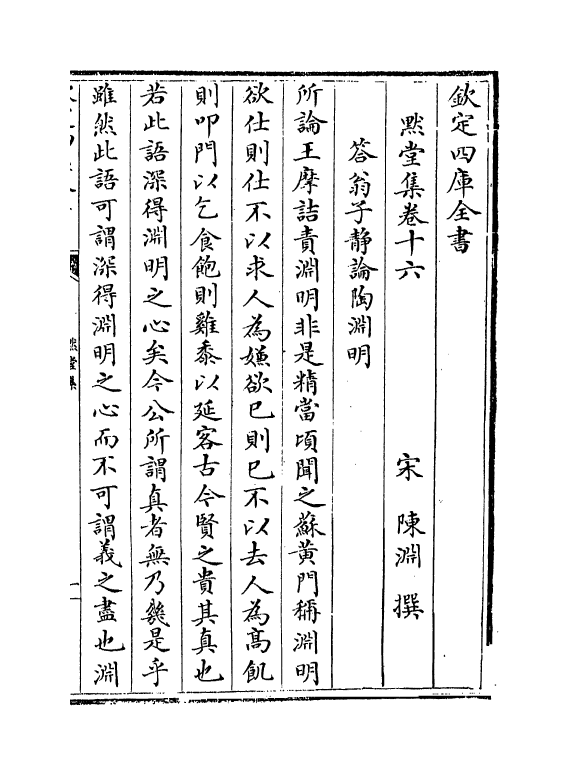 欽定四庫全書
黙堂集卷十六　宋　陳淵　撰
答翁子靜論陶淵明
所論王摩詰責淵明非是精當頃聞之蘇黄門稱淵明
欲仕則仕不以求人為嫌欲已則已不以去人為髙飢
則叩門以乞食飽則雞黍以延客古今賢之貴其真也
若此語深得淵明之心矣今公所謂真者無乃幾是乎
雖然此語可謂深得淵明之心而不可謂義之盡也淵
黙堂集
一